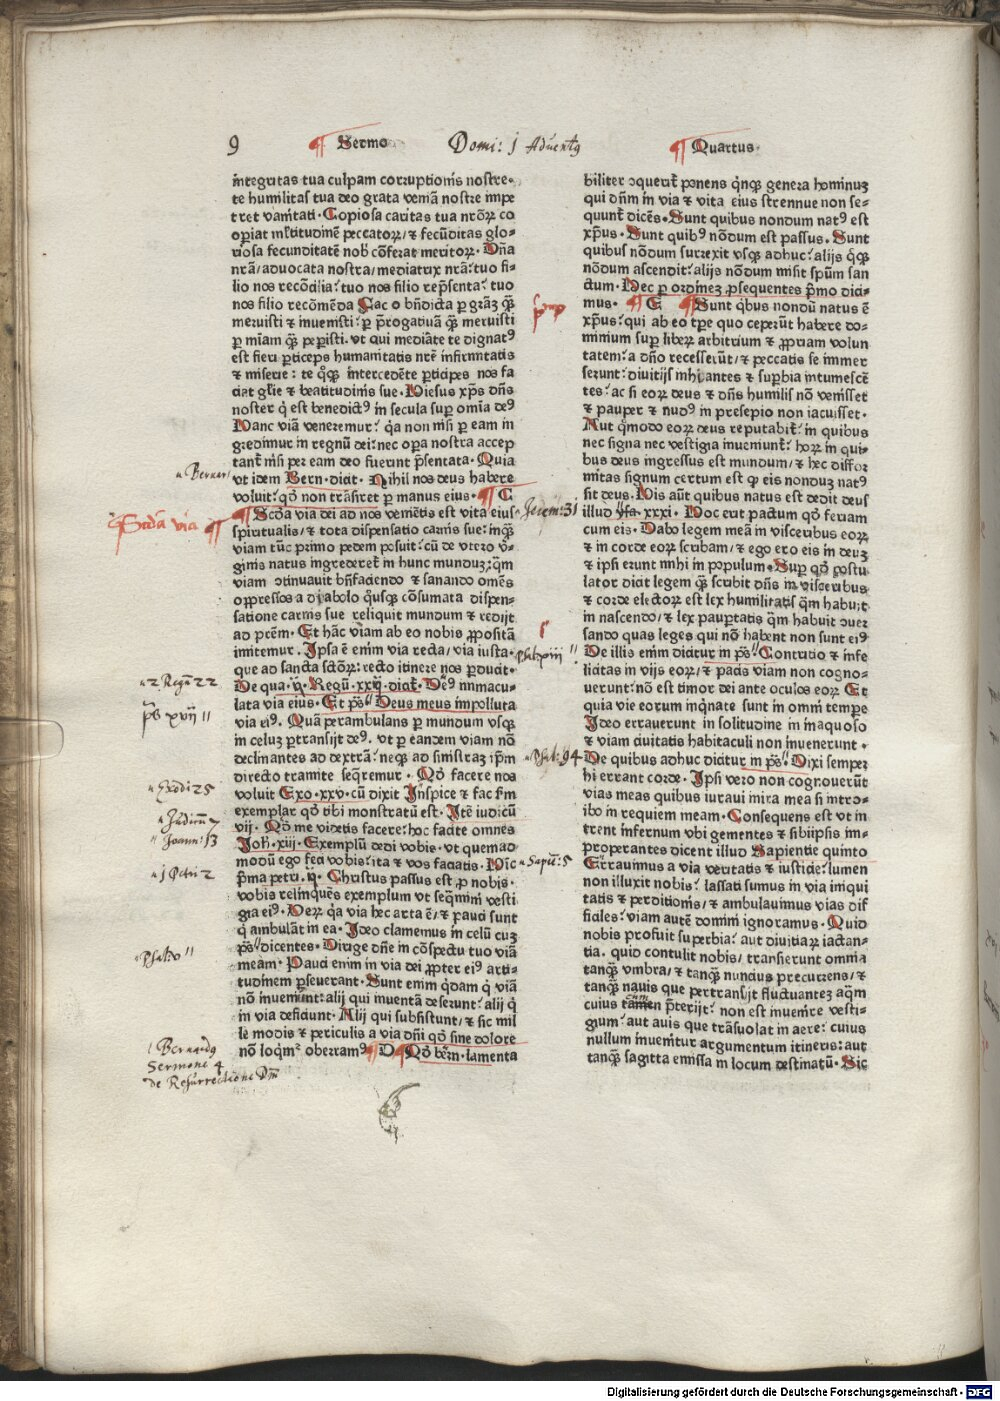 9 Sermo Domi: j Adventꝯ Quartus·
integritas tua culpam corruptionis nostre·
te humilitas tua deo grata veniā nostre impe
tret vanitati· Copiosa caritas tua nroꝝ co
opiat multitudinē peccatorꝝ/ ⁊ fecūditas glo⸗
riosa fecunditatē nob̄ cōferat meritorꝝ· Dn̄a
nrā/ aduocata nostra/ mediatrix nrā: tuo fi⸗
lio nos recōcilia: tuo nos filio rep̄senta: tuo
nos filio recōmēda Fac o bn̄dicta ꝑ grāꝫ quā
meruisti ⁊ inuenisti: ꝑ p̄rogatiuā quā meruisti
ꝑ miam quā peꝑisti· vt qui mediāte te dignatꝰ
est fieri ꝑticeps humanitatis nrē infirmitatis
⁊ miserie: te qꝫ intercedēte ꝑticipes nos fa
ciat glīe ⁊ beatitudinis sue· Hiesus xp̄s dn̄s
noster q̇ est benedictꝰ in secula suꝑ omīa deꝰ
Hanc viā veneremur: qꝛ non nisi ꝑ eam in
gredimur in regnū dei: nec oꝑa nostra accep
tant̄ nisi per eam deo fuerint p̄sentata· Quia
vt idem Bern· dicit· Nihil nos deus habere
voluit: qd̄ non trāsiret ꝑ manus eius· ¶ C
¶ Scd̄a via dei ad nos veniētis est vita eius
spiritualis/ ⁊ tota dispensatio carnis sue: inquā
viam tūc primo pedem posuit: cū de vtero v̇⸗
ginis natus ingrederet̄ in hunc munduꝫ: quā
viam ꝯtinuauit bn̄faciendo ⁊ sanando omēs
oppressos a dyabolo quousqꝫ cōsumata dispen⸗
satione carnis sue reliquit mundum ⁊ redijt
ad prēm· Et hāc viam ab eo nobis ꝓpositā
imitemur· Ipsa ē enim via recta/ via iusta·
que ad sancta sctōꝝ: recto itinere nos ꝑducit·
De qua· ij· Regū· xxij· dicit̄· Deꝰ immacu⸗
lata via eius· Et ps̄· Deus meus impolluta
via eiꝰ· Quā perambulans ꝑ mundum vsqꝫ
in celuꝫ ꝑtransijt deꝰ· vt ꝑ eandem viam nō
declinantes ad dextrā: neqꝫ ad sinistraꝫ ip̄m
directo tramite seq̄remur· Qd̄ facere nos
voluit Exo· xxv· cū dixit Inspice ⁊ fac sm̄
exemplar qd̄ tibi monstratū est· Itē iudicū
vij· Qd̄ me videtis facere: hoc facite omnes
Joh̄· xiij· Exemplū dedi vobis· vt quemad
modū ego feci vobis: ita ⁊ vos faciatis· Hic
p̄ma petri· ij· Christus passus est ꝓ nobis·
vobis relinquēs exemplum vt seq̄mini vesti
gia eiꝰ· Verꝝ qꝛ via hec arta ē/ ⁊ pauci sunt
q̇ ambulāt in ea· Ideo clamemus in celū cuꝫ
ps̄· dicentes· Dirige dn̄e in cōspectu tuo viā
meam· Pauci enim in via dei ꝓpter eiꝰ arti⸗
tudinem ꝑseuerant· Sunt enim quidam q̇ viā
nō inueniunt: alij qui inuentā deserunt: alij q̇
in via deficiunt· Alij qui subsistunt/ ⁊ sic mil
le modis ⁊ periculis a via dn̄i qd̄ sine dolore
nō loqm̄r oberramꝰ ¶ D ¶ Qd̄ bern̄· lamenta
biliter ꝯquerit̄ ponens quinqꝫ genera hominuꝫ
qui dn̄m in via ⁊ vita eius strennue non se⸗
quunt̄ dicēs· Sunt quibus nondum natꝰ est
xp̄us· Sunt quibꝰ nōdum est passus· Sunt
quibus nōdum surrexit vsqꝫ adhuc: alijs quoqꝫ
nōdum ascendit: alijs nōdum misit spūm san
ctum· Hec ꝑ ordineꝫ ꝓsequentes p̄mo dici⸗
mus· ¶ E ¶ Sunt quibus nondū natus ē
xp̄us: qui ab eo tꝑe quo ceperūt habere do⸗
minium suꝑ liberꝝ arbitrium ⁊ ꝓpriam volun
tatem: a dn̄o recesserūt/ ⁊ peccatis se immer
serunt: diuitijs inhiantes ⁊ suꝑbia intumescē
tes: ac si eorꝝ deus ⁊ dn̄s humilis nō venisset
⁊ pauper ⁊ nudꝰ in presepio non iacuisset·
Aut quomodo eorꝝ deus reputabit̄: in quibus
nec signa nec vestigia inueniunt̄: horꝝ in qui⸗
bus deus ingressus est mundum/ ⁊ hec diffor
mitas signum certum est ꝙ eis nonduꝫ natꝰ
sit deus. His aūt quibus natus est dedit deus
illud ysa· xxxi· Hoc erit pactum qd̄ feriam
cum eis· Dabo legem meā in visceribus eorꝝ
⁊ in corde eorꝝ scribam/ ⁊ ego ero eis in deuꝫ
⁊ ipsi erunt mihi in populum· Suꝑ qd̄ postu
lator dicit legem quā scribit dn̄s in visceribus
⁊ corde electorꝝ est lex humilitatis quā habuit
in nascendo/ ⁊ lex paupertatis quā habuit ꝯuer
sando quas leges qui nō habent non sunt eiꝰ
De illis enim dicitur in ps̄· Contritio ⁊ infe
licitas in vijs eorꝝ/ ⁊ pacis viam non cogno⸗
uerunt: nō est timor dei ante oculos eorꝝ Et
quia vie eorum inquinate sunt in omni tempe
Ideo errauerunt in solitudine in inaquoso
⁊ viam ciuitatis habitaculi non inuenerunt·
De quibus adhuc dicitur in ps̄· Dixi semper
hi errant corde· Ipsi vero non cognouerūt
vias meas quibus iuraui in ira mea si intro⸗
ibo in requiem meam· Consequens est vt in
trent infernum vbi gementes ⁊ sibiipsis im⸗
properantes dicent illud Sapientie quinto
Errauimus a via veritatis ⁊ iusticie: lumen
non illuxit nobis: lassati sumus in via iniqui
tatis ⁊ perditionis/ ⁊ ambulauimus vias dif
ficiles: viam autē domini ignoramus· Quid
nobis profuit superbia: aut diuitiarꝝ iactan⸗
tia· quid contulit nobis/ transierunt omnia
tanquā vmbra/ ⁊ tanquā nuncius precurrens/ ⁊
tanquā nauis que pertransijt fluctuanteꝫ aquā
cuius cum p̄terijt: non est inuenire vesti⸗
gium: aut auis que trāsuolat in aere: cuius
nullum inuenitur argumentum itineris: aut
tanquā sagitta emissa in locum destinatū· Sic
Bernar
Secūda via
2 Regū 22
ps xvij
Exodi 25
Judicū 7
Joann: 13
1 Petri 2
Psal: v
Bernardꝯ
Sermone 4
de Resurrectione Dn̄i
primo
Jerem: 31
Psal: xiii
Psal: 94
Sapiē: 5
Digitalisierung gefördert durch die Deutsche Forschungsgemeinschaft - DFG